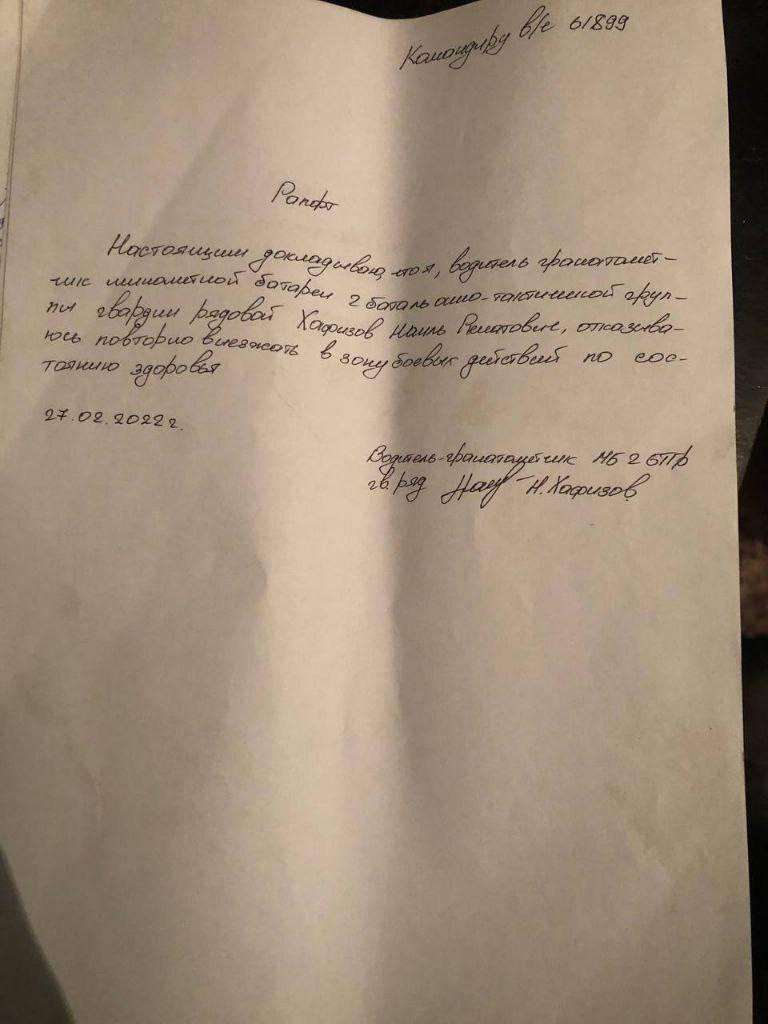 Командиру в/ч 61899
Рапорт
Настоящим докладываю, что я, водитель гранатомёт-
чик минометной батареи 2 батальонно-тактической груп-
пы гвардии рядовой Хафизов Наиль Ренатович, отказыва-
юсь повторно выезжать в зону боевых действий по сос-
тоянию здоровья
27.02.2022г.
Водитель-гранатомётчик МБ 2 БТГр
гв. ряд Н. Хафизов